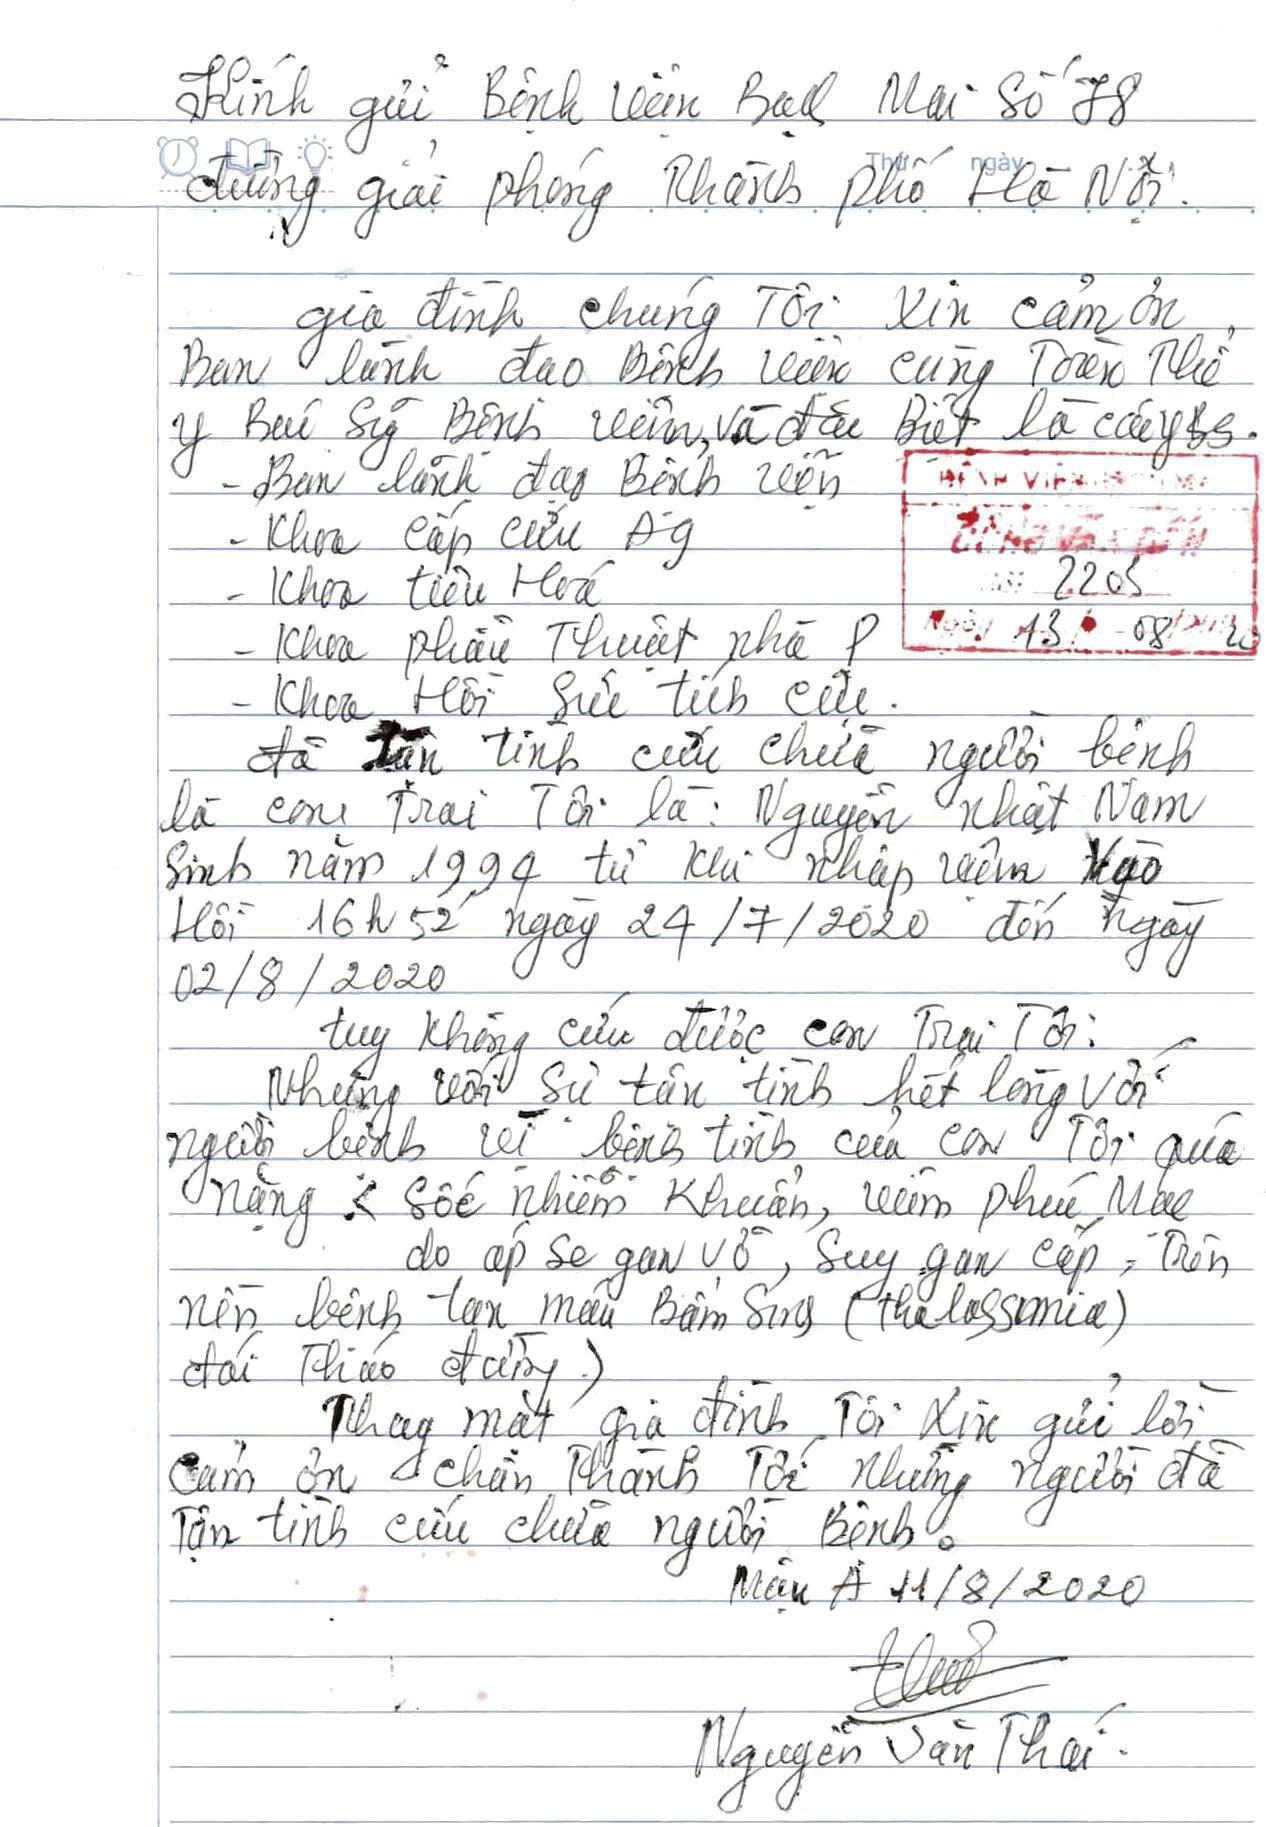 Kính gửi Bệnh viện Bạch Mai Số 78
Thứ ngày
đường giải phóng Thành phố Hà Nội.
gia đình chúng Tôi Xin cảm ơn
Ban lãnh đạo Bệnh viện cùng Toàn Thể
y Bác Sỹ Bệnh viện, và đặc Biệt là các y bs.
- Ban lãnh đạo Bệnh viện
BỆNH VIỆN
- Khoa cấp cứu A9
CÔNG VĂN ĐẾN
- Khoa tiêu Hoá
2205
- Khoa phẫu Thuật nhà P
Ngày 13 08 20
- Khoa Hồi Sức tích cực.
đã Tận tình cứu chữa người bệnh
là con Trai Tôi là: Nguyễn nhật Nam
Sinh năm 1994 từ khi nhập viện vào
Hồi 16h52 ngày 24/7/2020 đến ngày
02/8/2020
tuy không cứu được con Trai Tôi.
Nhưng với Sự tận tình hết lòng với
người bệnh vì bệnh tình của con Tôi quá
nặng: Sốc nhiễm Khuẩn, viêm phúc Mạc
do áp se gan vỡ, Suy gan cấp, Trên
nền bệnh tan máu Bẩm Sinh (thalassemia)
đái Tháo đường)
Thay mặt gia đình Tôi Xin gửi lời
Cảm ơn chân Thành Tới những người đã
Tận tình cứu chữa người Bệnh.
Mậu A 11/8/2020
Nguyễn Văn Thái.